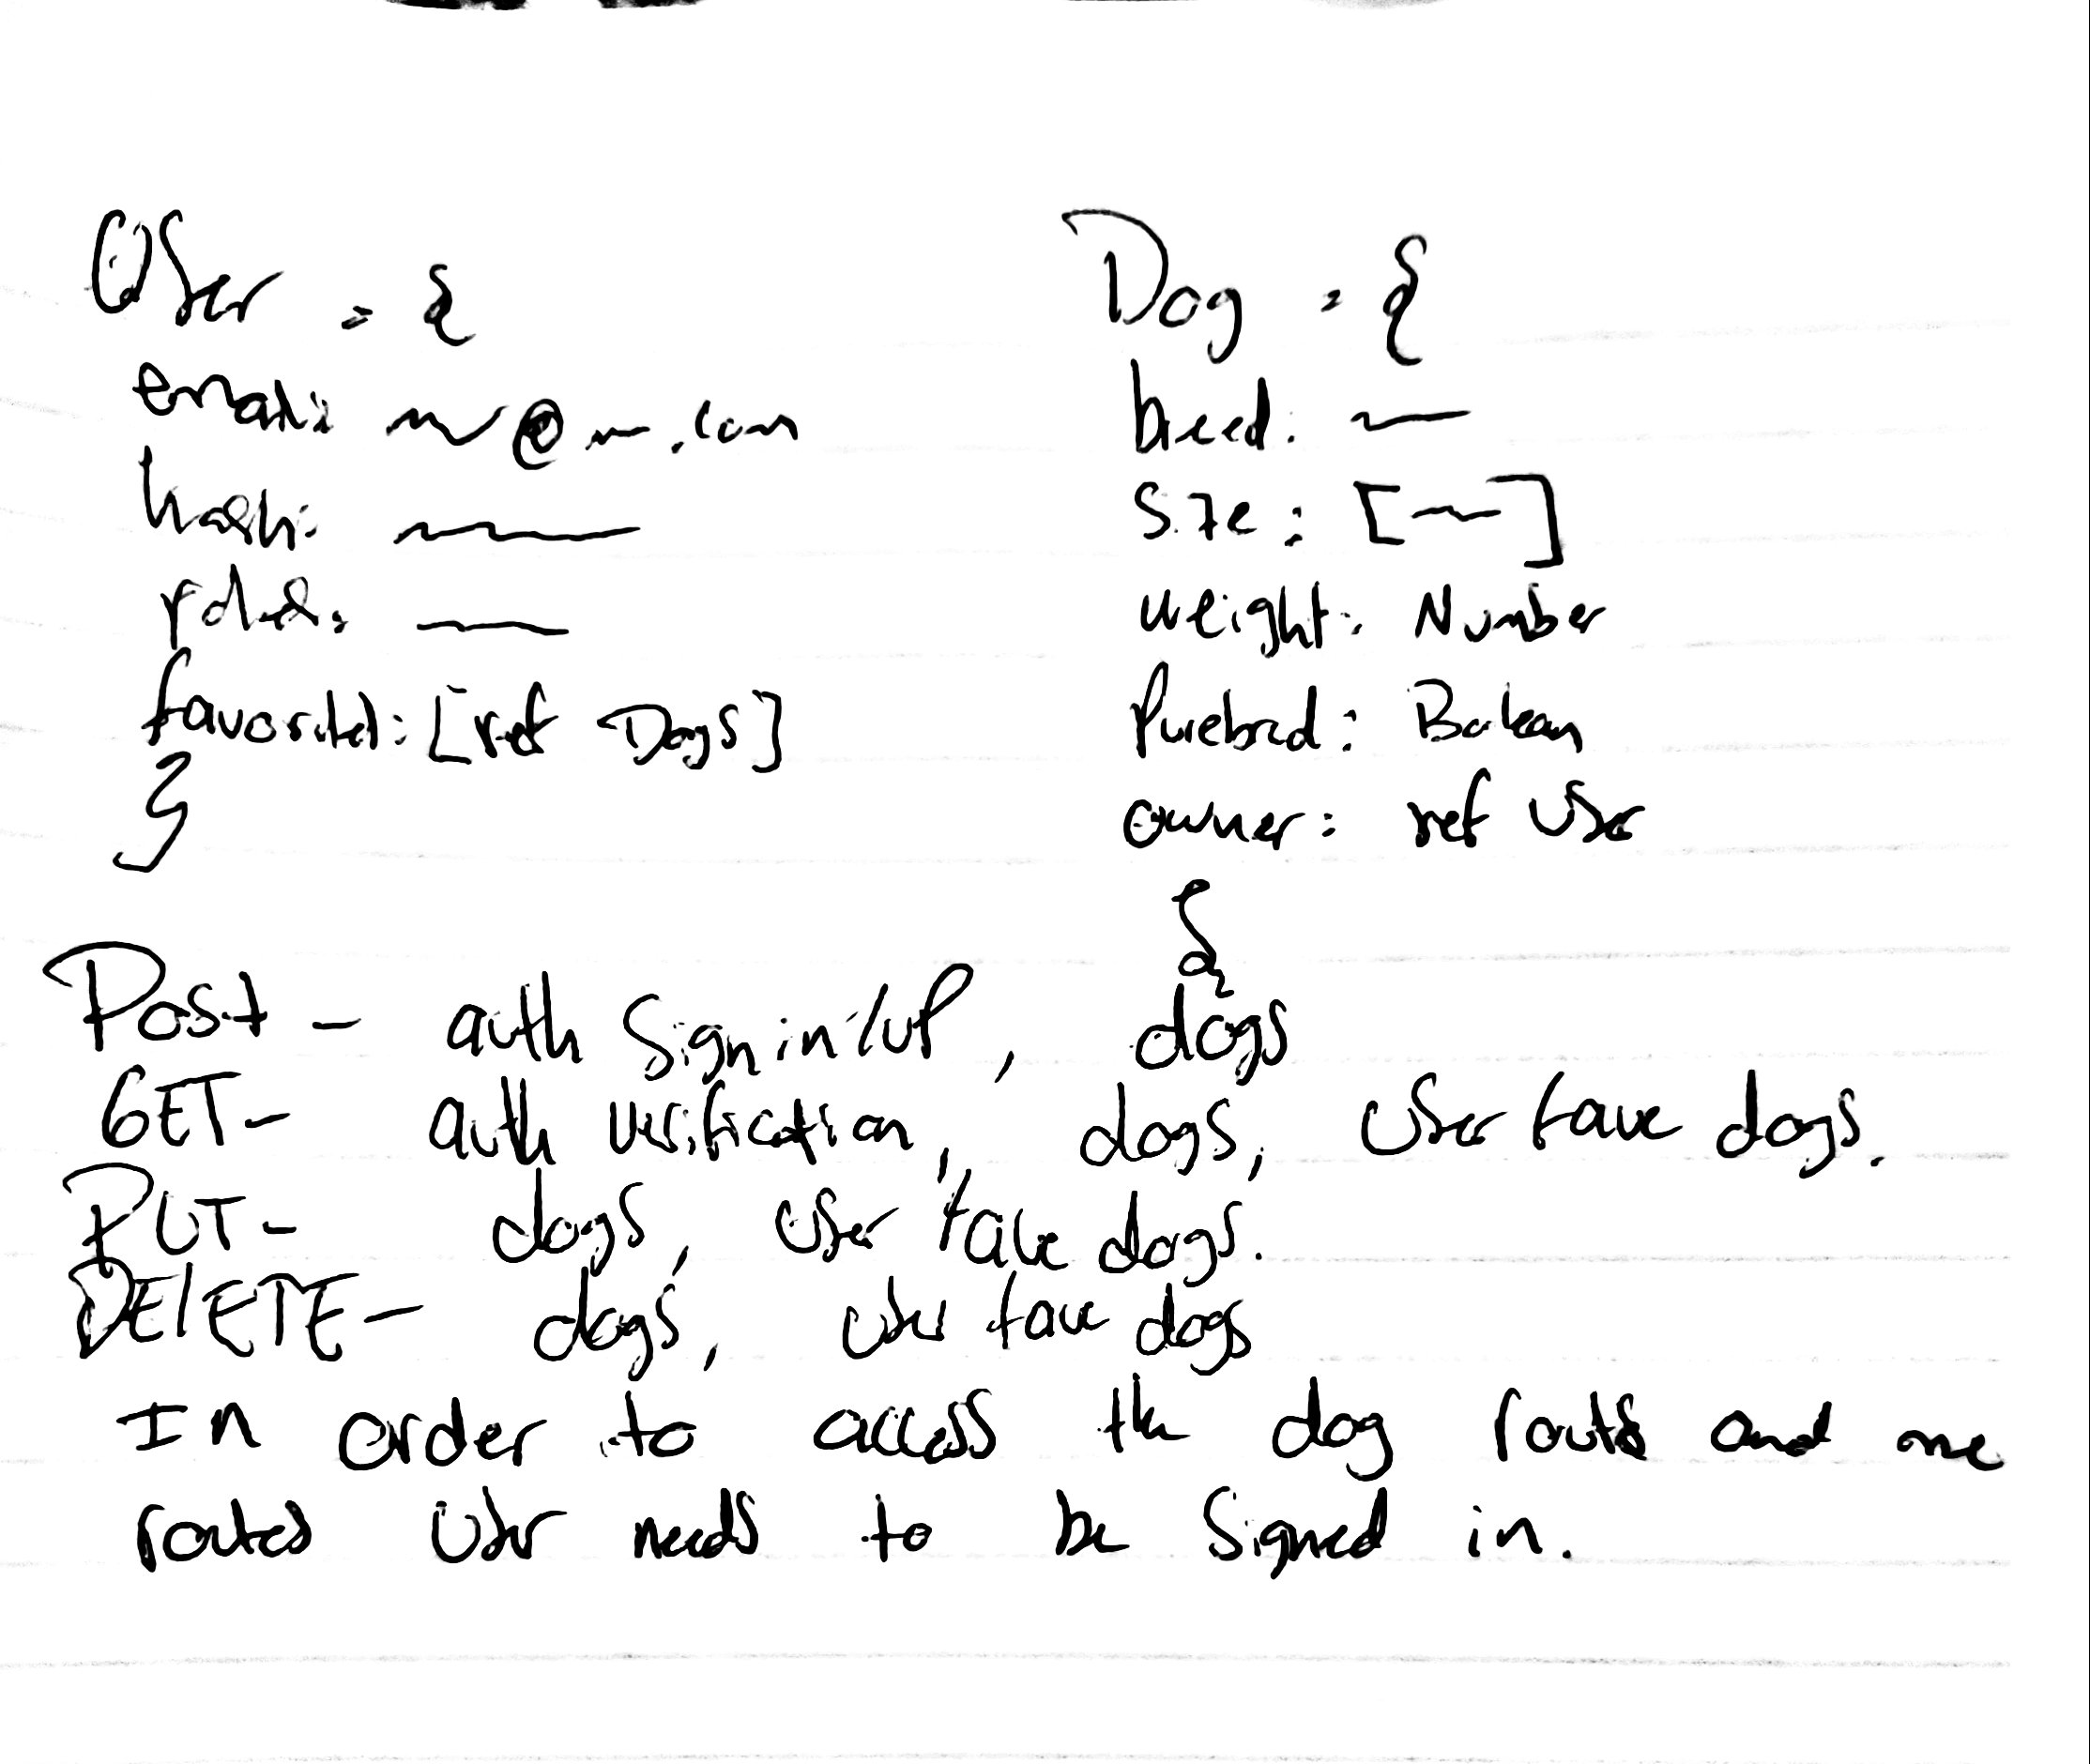 User = {
email: @ .com
hash:
roles:
favorited: [ref Dogs]
}
Dog = {
breed:
Size: [ ]
weight: Number
Purebred: Boolean
owner: ref User
}
Post - auth Signin/up, dogs
GET - auth verification, dogs, user fave dogs.
PUT - dogs, user fave dogs.
DELETE - dogs, user fave dogs
In order to access the dog routes and me
routes User needs to be Signed in.